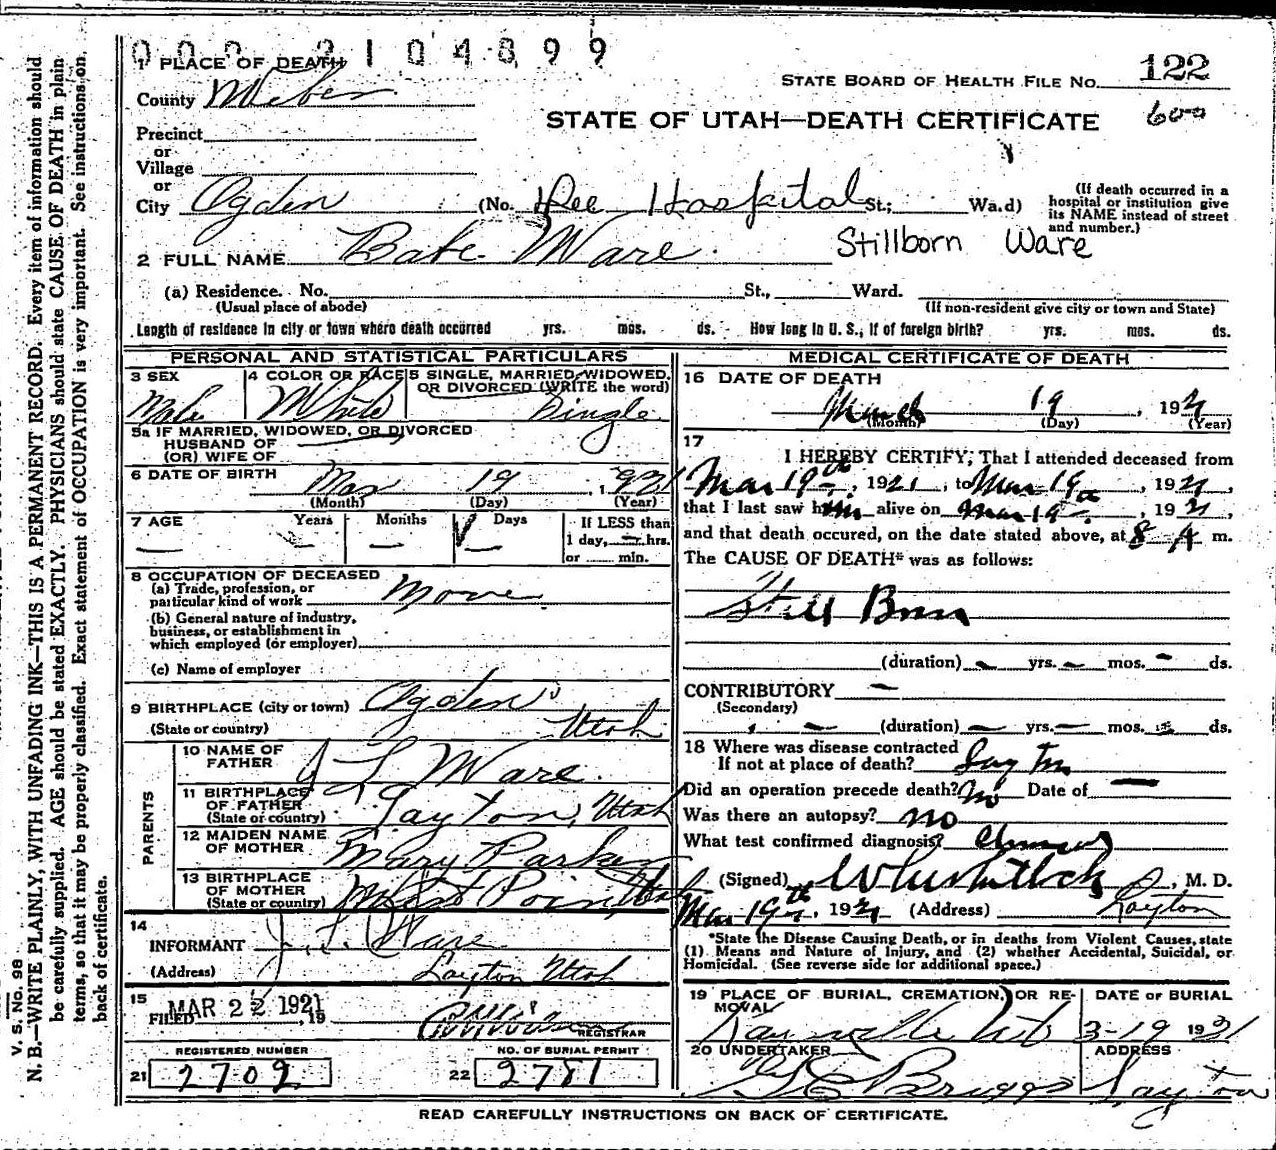 0 0 0 2 1 0 4 8 9 9
1 PLACE OF DEATH
County Weber
STATE BOARD OF HEALTH FILE No. 122
STATE OF UTAH—DEATH CERTIFICATE
600
Precinct
or
Village
or
City Ogden (No. Dee Hospital St.; Wa.d)
(If death occurred in a hospital or institution give its NAME instead of street and number.)
2 FULL NAME Babe Ware. Stillborn Ware
(a) Residence. No. St., Ward.
(Usual place of abode) (If non-resident give city or town and State)
Length of residence in city or town where death occurred yrs. mos. ds. How long in U. S., if of foreign birth? yrs. mos. ds.
PERSONAL AND STATISTICAL PARTICULARS
3 SEX Male
4 COLOR OR RACE White
5 SINGLE, MARRIED, WIDOWED, OR DIVORCED (WRITE the word) Single
5a IF MARRIED, WIDOWED, OR DIVORCED
HUSBAND OF
(OR) WIFE OF
6 DATE OF BIRTH Mar 19, 1921
(Month) (Day) (Year)
7 AGE Years Months Days
If LESS than
1 day, hrs.
or min.
8 OCCUPATION OF DECEASED
(a) Trade, profession, or
particular kind of work None
(b) General nature of industry,
business, or establishment in
which employed (or employer)
(c) Name of employer
9 BIRTHPLACE (city or town) Ogden
(State or country) Utah
PARENTS
10 NAME OF FATHER J L Ware.
11 BIRTHPLACE OF FATHER (State or country) Layton, Utah
12 MAIDEN NAME OF MOTHER Mary Parker
13 BIRTHPLACE OF MOTHER (State or country) West Point Utah
14
INFORMANT J. L. Ware
(Address) Layton Utah
15
FILED MAR 22 1921, 19
REGISTRAR
REGISTERED NUMBER
21 2709
NO. OF BURIAL PERMIT
22 2781
MEDICAL CERTIFICATE OF DEATH
16 DATE OF DEATH
March 19, 1921
(Month) (Day) (Year)
17
I HEREBY CERTIFY, That I attended deceased from
Mar 19th, 1921, to Mar 19th, 1921,
that I last saw him alive on Mar 19, 1921,
and that death occured, on the date stated above, at 8 A m.
The CAUSE OF DEATH* was as follows:
Still Born
(duration) — yrs. — mos. — ds.
CONTRIBUTORY —
(Secondary)
(duration) — yrs. — mos. ds.
18 Where was disease contracted
If not at place of death? Layton
Did an operation precede death? No Date of —
Was there an autopsy? no
What test confirmed diagnosis?
(Signed) Whitlock, M. D.
Mar 19th, 1921 (Address) Layton
*State the Disease Causing Death, or in deaths from Violent Causes, state
(1) Means and Nature of Injury, and (2) whether Accidental, Suicidal, or
Homicidal. (See reverse side for additional space.)
19 PLACE OF BURIAL, CREMATION, OR REMOVAL DATE OF BURIAL
Kaysville Utah 3-19 1921
20 UNDERTAKER ADDRESS
Briggs Layton
READ CAREFULLY INSTRUCTIONS ON BACK OF CERTIFICATE.
V. S. No. 98
N. B.—WRITE PLAINLY, WITH UNFADING INK—THIS IS A PERMANENT RECORD. Every item of information should
be carefully supplied. AGE should be stated EXACTLY. PHYSICIANS should state CAUSE OF DEATH in plain
terms, so that it may be properly classified. Exact statement of OCCUPATION is very important. See instructions on
back of certificate.